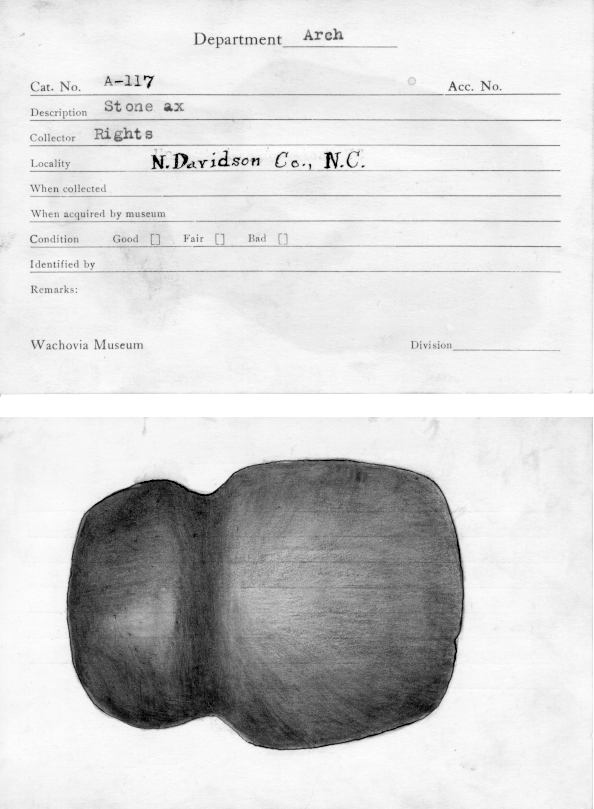 Department Arch
Cat. No. A-117 Acc. No.
Description Stone ax
Collector Rights
Locality N.Davidson Co., N.C.
When collected
When acquired by museum
Condition Good [] Fair [] Bad []
Identified by
Remarks:
Wachovia Museum Division